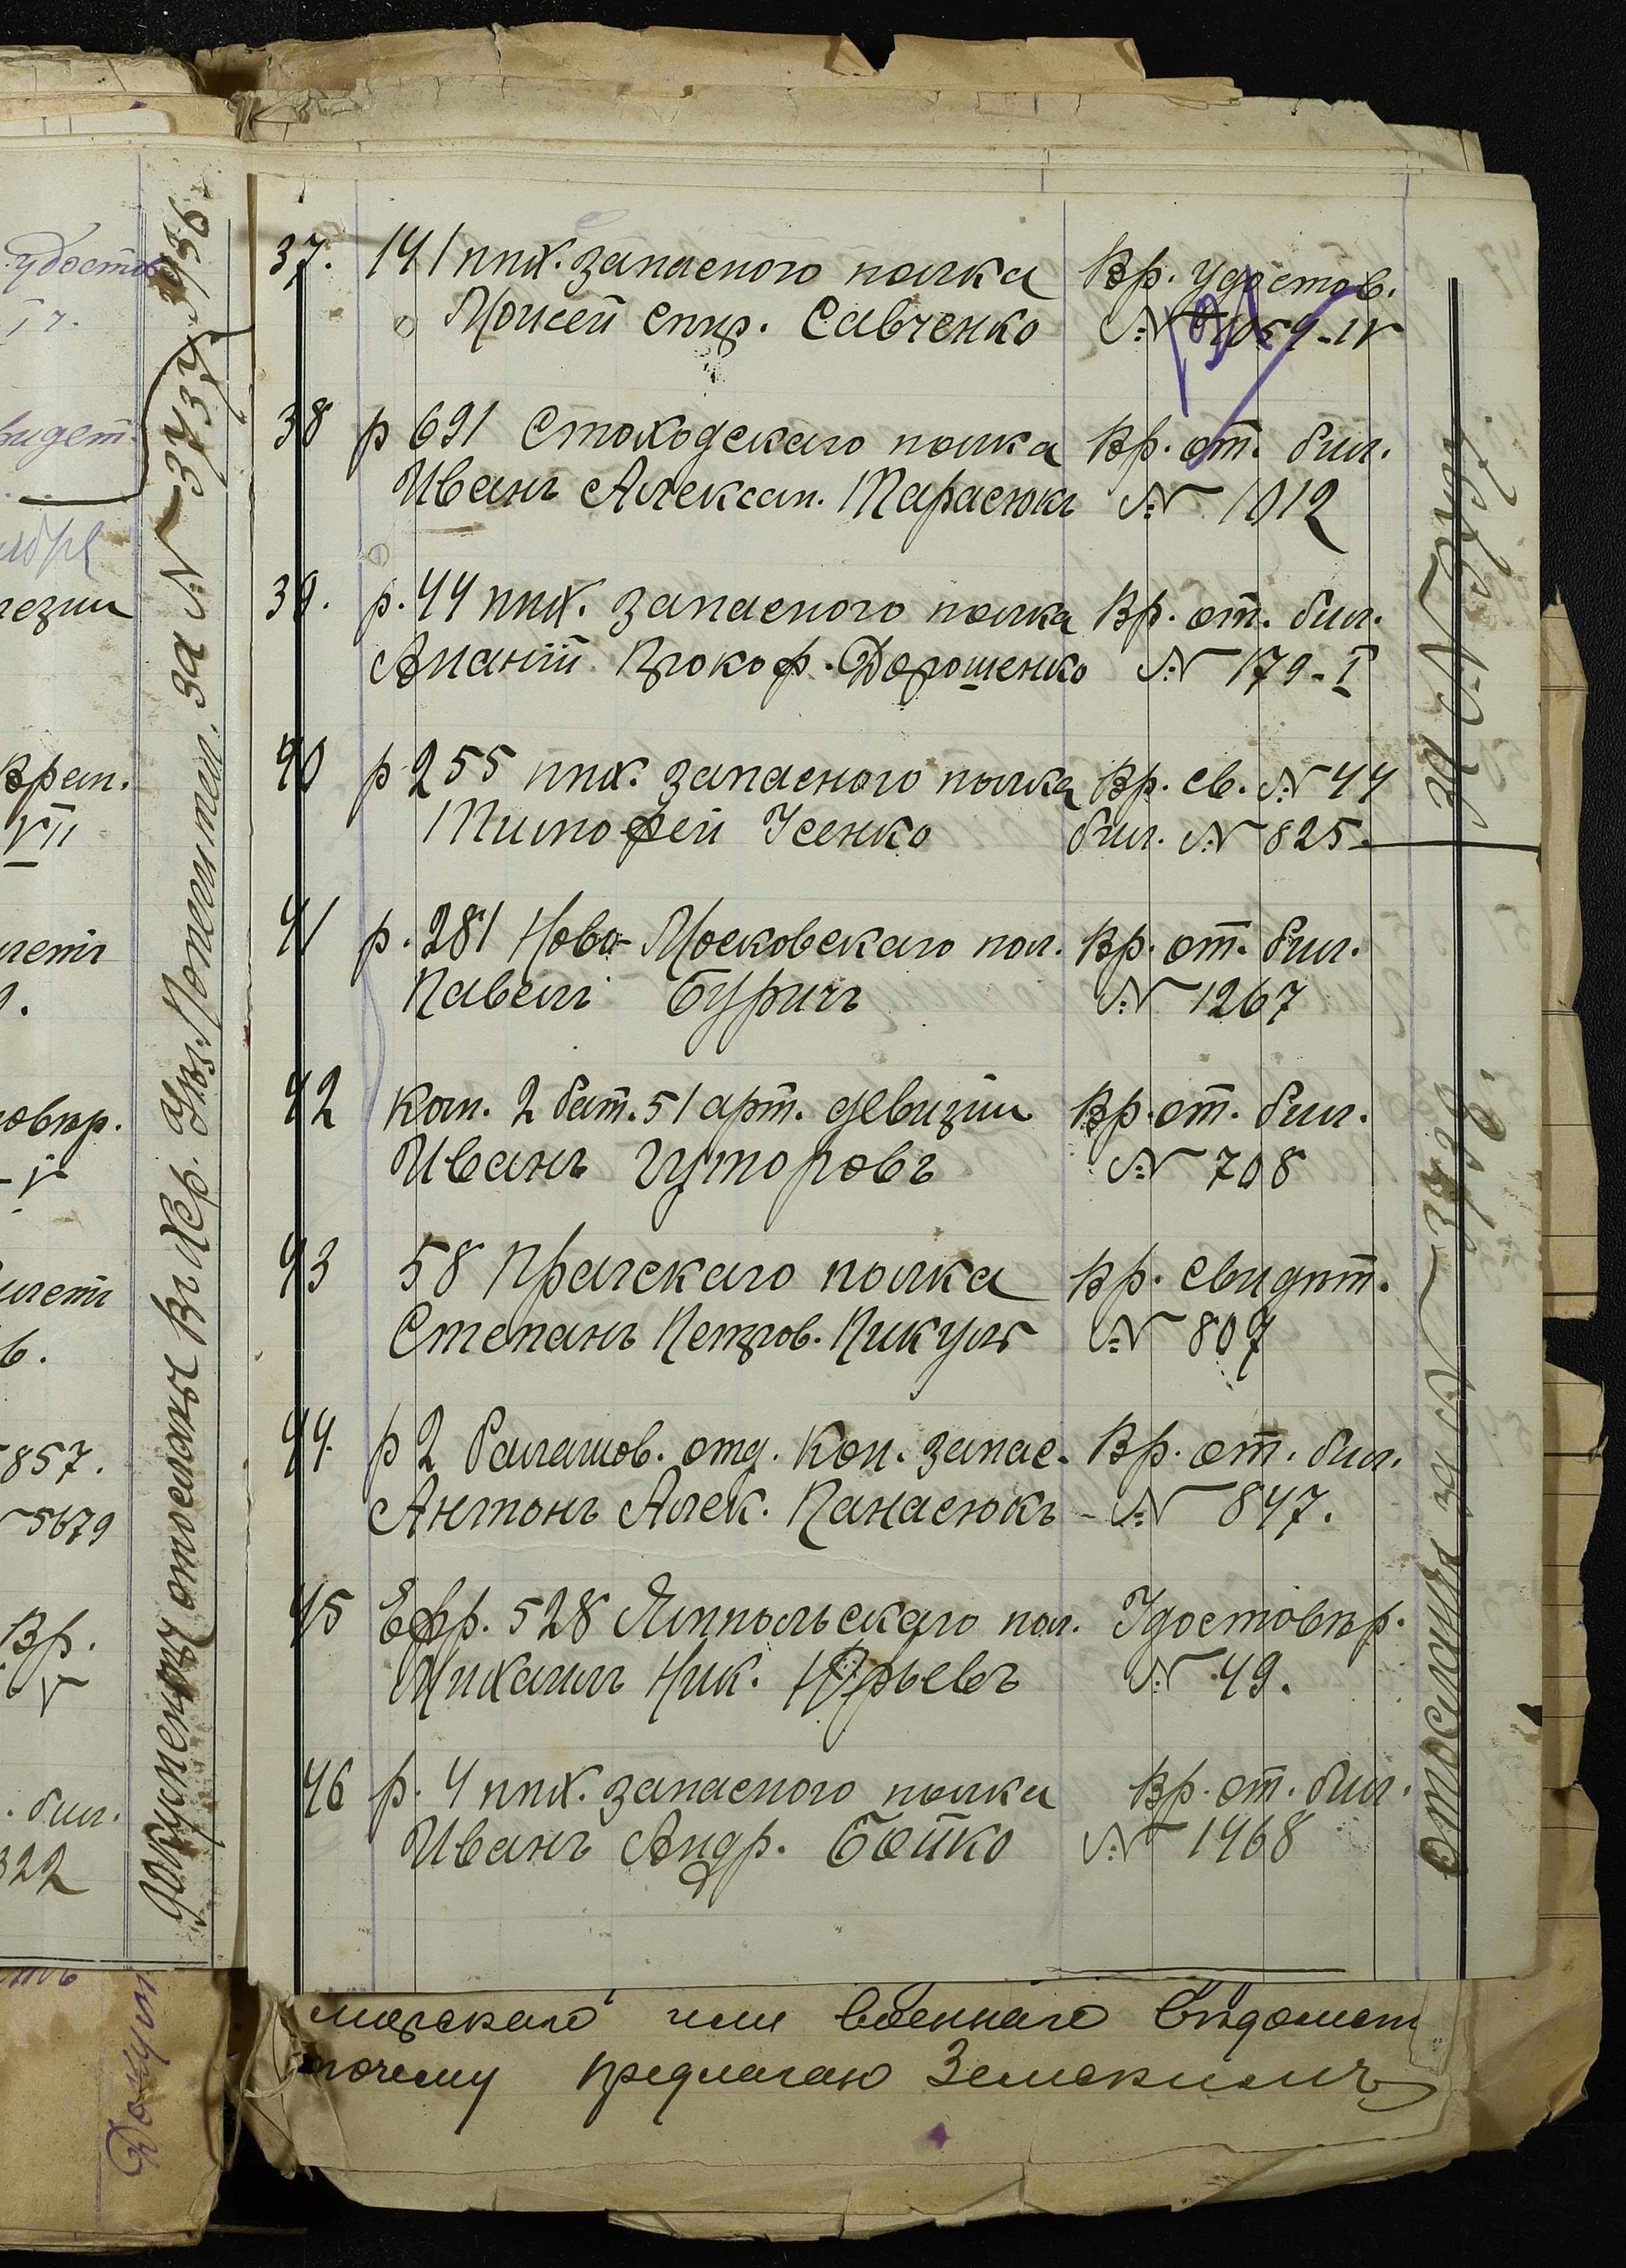 удостов
видет.
Врем.
VII
857.
5679
Вр.
V
бил.
322
документы отосланы въ Хер. за № 3737
37. 141 пѣх. запасного полка Вр. удостов.
Моисей Спир. Савченко № 1059-IV
38 р 691 Стоходскаго полка Вр. от. бил.
Иванъ Алексан. Тарасюкъ № 1012
39. р. 44 пѣх. запасного полка Вр. от. бил.
Ананій Прокоф. Дорошенко № 179-I
40 р 255 пѣх. запасного полка Вр. св. № 44
Тимофей Усенко бил. № 825.
41 р. 281 Ново-Московскаго пол. Вр. от. бил.
Павелъ Буричъ № 1267
42 кан. 2 бат. 51 арт. девизіи Вр. от. бил.
Иванъ Гуторовъ № 708
43 58 Пражскаго полка Вр. свидѣт.
Степанъ Петров. Пикуль № 807
44. р 2 Балашов. отд. Кон. запас. Вр. от. бил.
Антонъ Алек. Панасюкъ - № 847.
45 Ефр. 528 Ямпольскаго пол. Удостовѣр.
Михаилъ Ник. Юрьевъ № 49.
46 р. 4 пѣх. запасного полка Вр. от. бил.
Иванъ Андр. Бойко № 1468
за №
отосланы за №
морскаго или военнаго вѣдомст
почему предлагаю Земскимъ
Докум